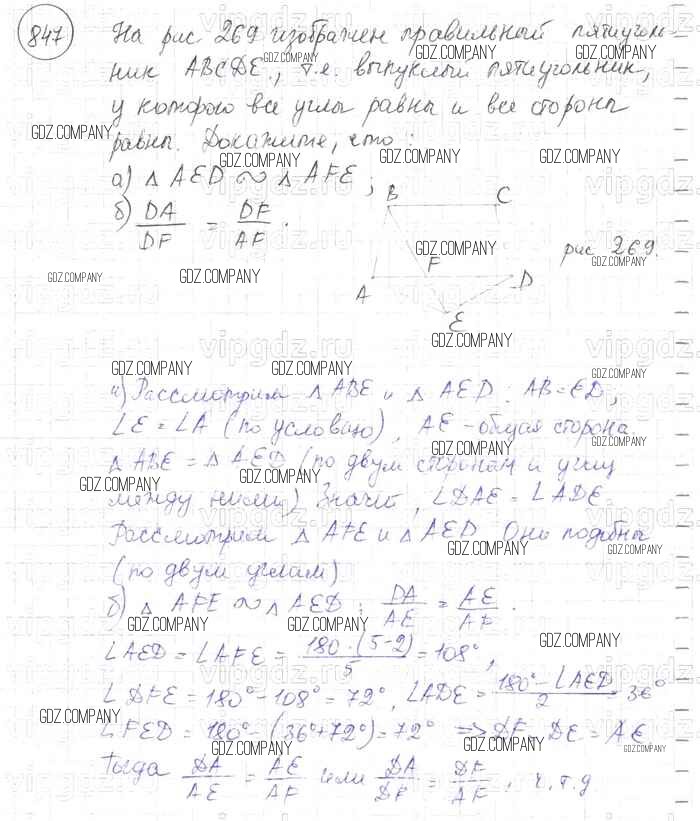 847
На рис 269 изображён правильный пятиуголь-
ник ABCDE, т.е. выпуклый пятиугольник,
у которого все углы равны и все стороны
равны. Докажите, что:
а) △ AED ∾ △ AFE ;
б) DA/DF = DF/AF.
B C
F
A D
E
рис 269.
а) Рассмотрим △ ABE и △ AED: AB = ED,
∠E = ∠A (по условию), AE - общая сторона.
△ ABE = △ AED (по двум сторонам и углу
между ними) Значит, ∠DAE = ∠ADE
Рассмотрим △ AFE и △ AED Они подобны
(по двум углам)
б) △ AFE ∾ △ AED, DA/AE = AE/AF.
∠AED = ∠AFE = 180·(5-2)/5 = 108°,
∠DFE = 180° - 108° = 72°, ∠ADE = 180° - ∠AED/2 36°
∠FED = 180° - (36° + 72°) = 72° => DF DE = AE
Тогда DA/AE = AE/AF или DA/DF = DF/AF, ч.т.д
GDZ.COMPANY
vipgdz.ru